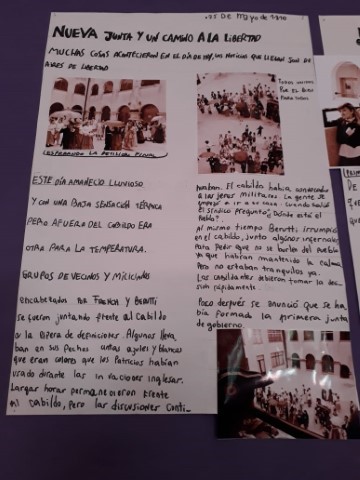 25 DE Mayo de 1810
NUEVA JUNTA Y UN CAMINO A LA LIBERTAD
MUCHAS COSAS ACONTECIERON EN EL DIA DE HOY, LAS NOTICIAS QUE LLEGAN SON DE
AIRES DE LIBERTAD
ESPERANDO LA DECISION FINAL
ESTE DIA AMANECIO LLUVIOSO
Y CON UNA BAJA SENSACIÓN TÉRMICA
PERO AFUERA DEL CABILDO ERA
OTRA PARA LA TEMPERATURA.
GRUPOS DE VECINOS Y MILICIANOS
encabezados por French y Berutti
se fueron juntando frente al Cabildo
a la espera de definiciones. Algunos lleva-
ban en sus pechos cintas azules y blancas
que eran colores que los Patricios habían
usado durante las invaciones inglesas.
Largas horas permanecieron frente
al cabildo, pero las discusiones conti-
nuaban. El cabildo había convocado
a los jefes militares. La gente se
El sindico preguntó "¿Dónde está el
Pueblo?".
Al mismo tiempo Berutti irrumpió
en el cabildo, junto algunos infernales
Para pedir que no se burlen del Pueblo
ya que habían mantenido la calma
Pero no estaban tranquilos ya.
Los cabildantes debieron tomar la deci-
sión rápidamente.
Poco después se anunció que se ha-
bía formado la primera junta
de gobierno.